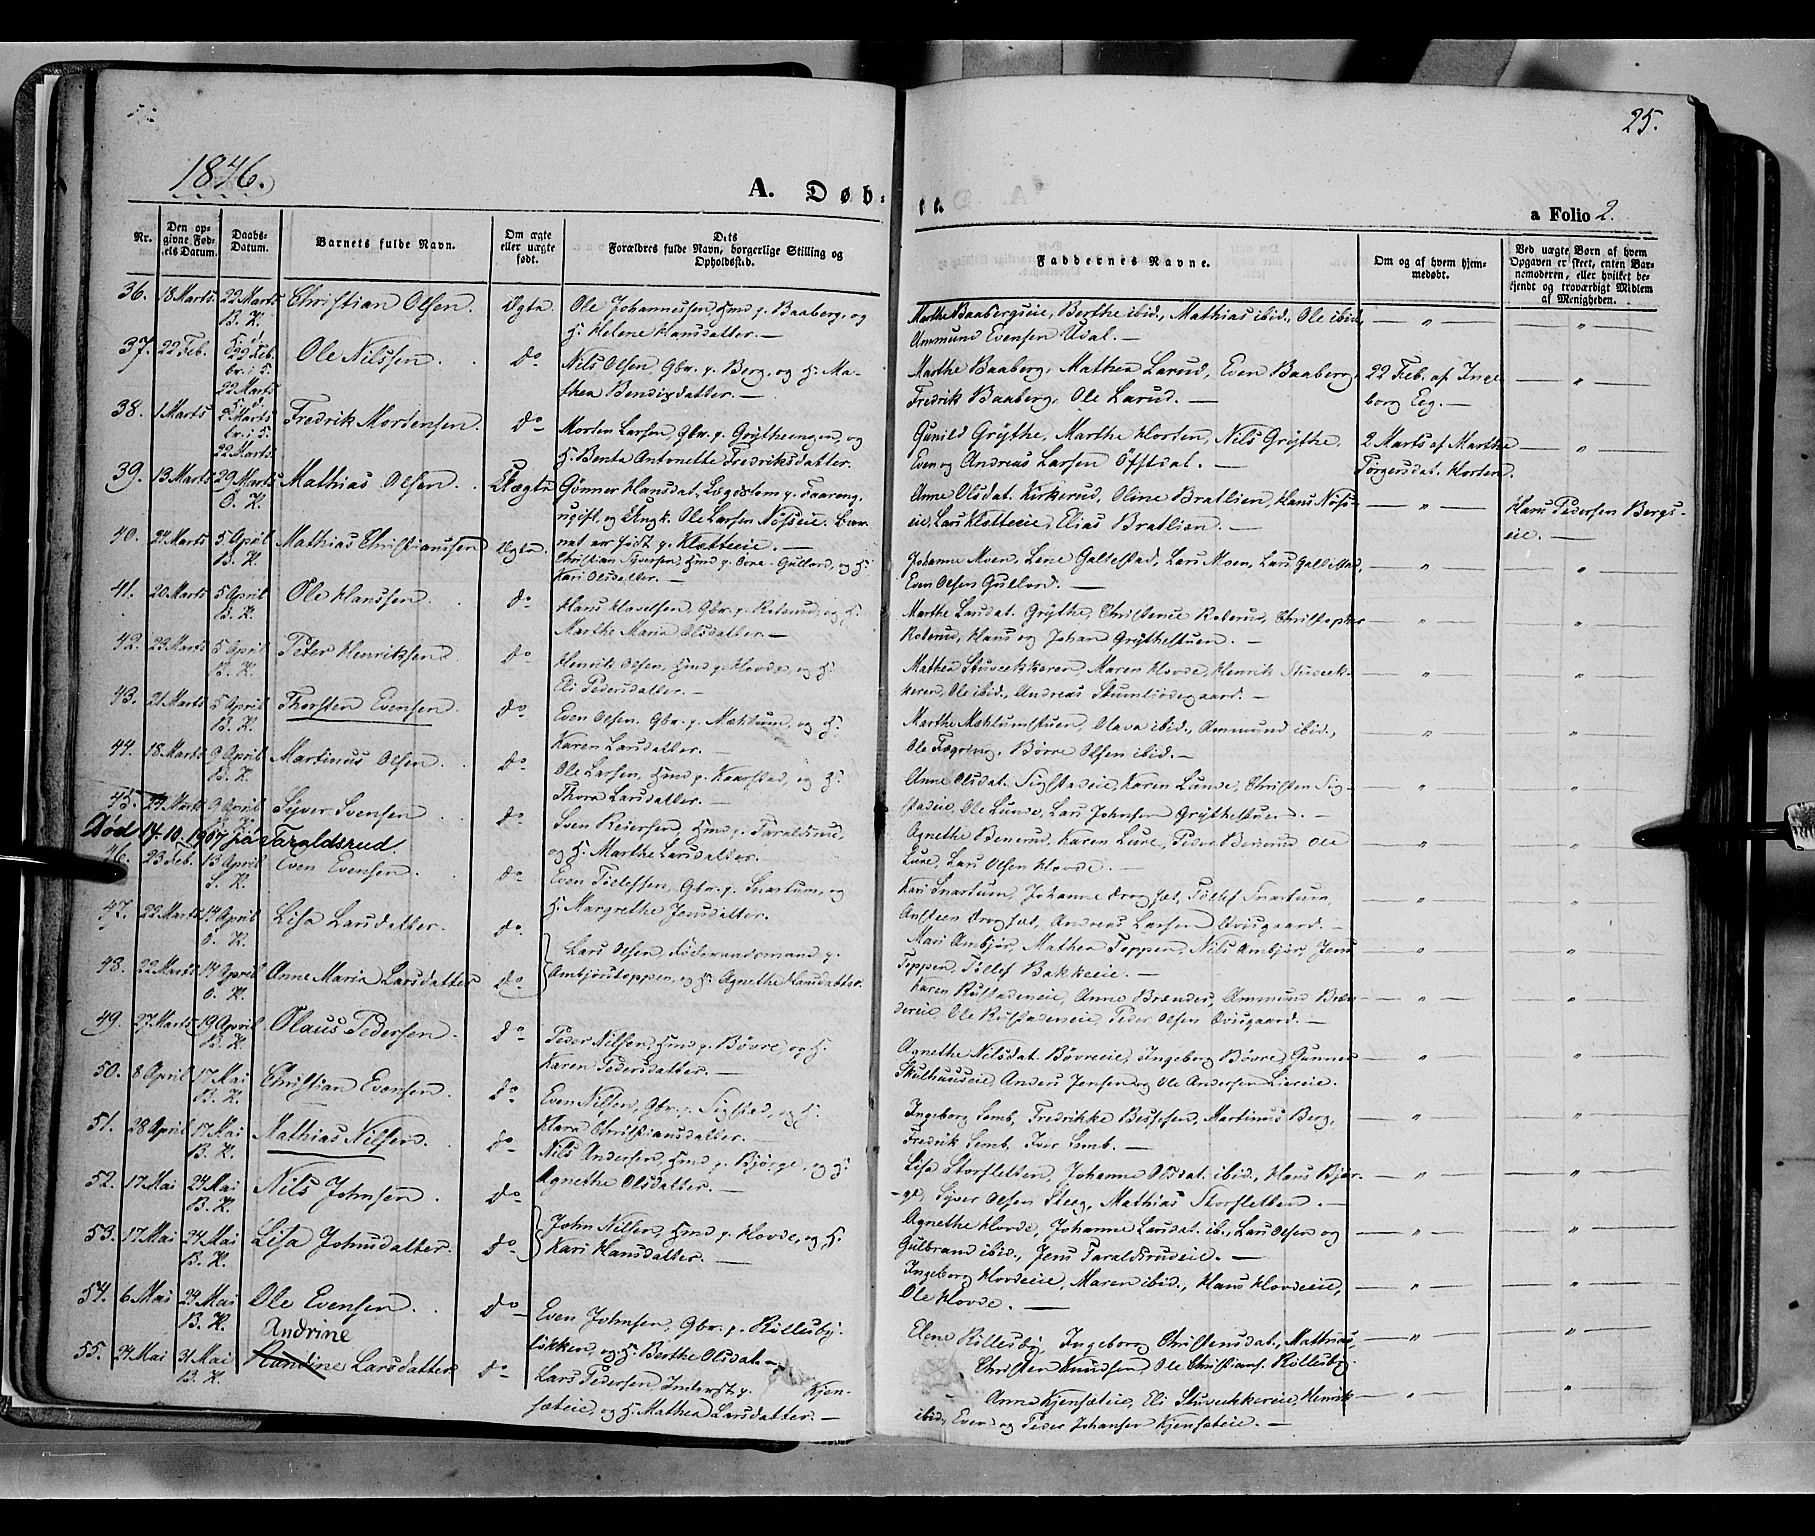 25.
1846.
A. Døb: te.
a Folio 2.
Nr.
Den op-
givne Fød-
sels Datum.
Daabs-
Datum.
Barnets fulde Navn.
Om ægte
eller uægte
født.
Dets
Forældres fulde Navn, borgerlige Stilling og
Opholdssted.
Faddernes Navne.
Om og af hvem hjem-
medøbt.
Ved uægte Børn af hvem
Opgaven er skeet, enten Bar-
nemoderen, eller hvilket be-
kjendt og troværdigt Midlem
af Menigheden.
36. 18 Marts 22 Marts B. K. Christian Olsen. Ægte. Ole Johannessen, Hmd p. Baaberg, og
H. Helene Hansdatter. —
Marthe Baabergseie, Berthe ibid., Mathias ibid., Ole ibid.,
Ammund Evensen Udal. —
37. 22 Feb. 22 Feb. br. i S. 22 Marts Ole Nilssen. do Nils Olsen, Gbr. p. Berg, og H. Ma-
thea Bendixdatter. —
Marthe Baaberg, Mathea Larud, Even Baaberg,
Fredrik Baaberg, Ole Larud. —
22 Feb. af Inge
borg Eeg. —
38. 1 Marts 2 Marts br. i S. 22 Marts Fredrik Mortensen. do Morten Larsen, Gbr. p. Grytheengen, og
H. Benta Antonette Fredriksdatter.
Gunild Grythe, Marthe Horten, Nils Grythe,
Even og Andreas Larsen Ofstdal. —
2 Marts af Marthe
Torgersdat. Horten.
39. 13 Marts 29 Marts O. K. Mathias Olsen. Uægte Gønner Hansdat., Lægdslem p. Faareng,
ugift, og Ungk. Ole Larsen Nøsseie. Bar-
net er født p. Klætteeie. —
Anne Olsdat. Kirkerud, Oline Bratlien, Hans Nøss-
eie, Lars Kletteeie, Elias Bratlien. —
Hans Pedersen Bergs-
eie. —
40. 24 Marts 5 April B. K. Mathias Christianssen Ægte. Christian Syversen, Hmd p. Øvre-Gullord, og H.
Kari Olsdatter. —
Johanne Moen, Lene Galtestad, Lars Moen, Lars Galtestad,
Even Olsen Gullord. —
41. 20 Marts 5 April B. K. Ole Hanssen. do Hans Hovelsen, Gbr. p. Roterud, og H.
Marthe Maria Olsdatter. —
Marthe Larsdat. Grythe, Christence Roterud, Christopher
Roterud, Hans og Johan Grythestuen. —
42. 23 Marts 5 April B. K. Peter Henriksen. do Henrik Olsen, Hmd p. Hovde, og H.
Eli Pedersdatter. —
Mathea Stuvekkeren, Maren Hovde, Henrik Stuvek-
keren, Ole ibid., Andreas Skumlsødegaard. —
43. 21 Marts 5 April B. K. Thorsten Evensen. do Even Olsen, Gbr. p. Mæhlum, og H.
Karen Larsdatter. —
Marthe Mæhlumstuen, Olava ibid., Ammund ibid.,
Ole Fægring, Børre Olsen ibid. —
44. 18 Marts 9 April B. K. Martinus Olsen. do Ole Larsen, Hmd p. Kaarstad, og H.
Thora Larsdatter. —
Anne Olsdat. Sigstadeie, Karen Lunde, Christen Sig-
stadeie, Ole Lunde, Lars Johnsen Grythestuen. —
45. 24 Marts 9 April Syver Svensen. do Sven Reiersen, Hmd p. Taraldsrud,
og H. Marthe Larsdatter. —
Agnethe Benerud, Karen Lure, Peder Benerud, Ole
Lure, Lars Olsen Hovde. —
Død 14.10.1907 på Taraldsrud
46. 23 Feb. 13 April S. K. Even Evensen. do Even Tollefsen, Gbr. p. Snartum, og
H. Margrethe Jensdatter.
Kari Snartum, Johanne Drogsæt, Tollef Snartum,
Austeen Drogsæt, Andreas Larsen Qvisgaard. —
47. 22 Marts 14 April O. K. Lisa Larsdatter. do. Lars Olsen, Føderaadsmand p.
48. 22 Marts 14 April O. K. Anne Maria Larsdatter do. Ambjørstoppen, og H. Agnethe Hansdatter.
Mari Ambjør, Mathea Toppen, Nils Ambjør, Jens
Toppen, Tollef Bakkeeie. —
Karen Rustadeneie, Anne Brænden, Ammund Bræn-
dereie, Ole Rustadeneie, Peder Olsen Qvisgaard. —
49. 27 Marts 19 April B. K. Olaus Pedersen. do Peder Nilsen, Hmd p. Bøvre, og H.
Karen Pedersdatter. —
Agnethe Nilsdat. Bøvreeie, Ingeborg Bøvre, Gunner
Skulhuuseie, Anders Jensen og Ole Andersen Liereie.
50. 8 April 17 Mai B. K. Christian Evensen. do Even Nilsen, Gbr. p. Sigstad, og H.
Klara Christiansdatter.
Ingeborg Semb, Fredrikke Bessesen, Martinus Berg,
Fredrik Semb, Iver Semb. —
51. 28 April 17 Mai B. K. Mathias Nilsen. do Nils Andersen, Hmd p. Bjørge, og H.
Agnethe Olsdatter. —
Lisa Storsletten, Johanne Olsdat. ibid., Hans Bjør-
ge, Syver Olsen Steeg, Mathias Storsletten. —
52. 17 Mai 24 Mai B. K. Nils Johnsen. do John Nilsen, Hmd p. Hovde, og H.
53. 17 Mai 24 Mai B. K. Lisa Johnsdatter. do Kari Hansdatter. —
Agnethe Hovde, Johanne Larsdat. ib., Lars Olsen og
Gulbrand ibid., Jens Taraldsrudeie. —
Ingeborg Hovdeeie, Maren ibid., Hans Hovdeeie,
Ole Hovde. —
54. 6 Mai 24 Mai B. K. Ole Evensen. do Even Johnsen, Gbr. p. Rollusby-
løkken, og H. Berthe Olsdat. —
Elene Rollusby, Ingeborg Christensdat., Mathias,
Christen Knudsen, Ole Christians. Rollusby.
55. 24 Mai 31 Mai B. K. Andrine
Handine Larsdatter do Lars Pedersen, Inderst p. Kjen-
sæteie, og H. Mathea Larsdatter. —
Anne Kjensæteie, Eli Stuvekkereie, Henrik
ibid., Even og Peder Johansen Kjensæteie. —